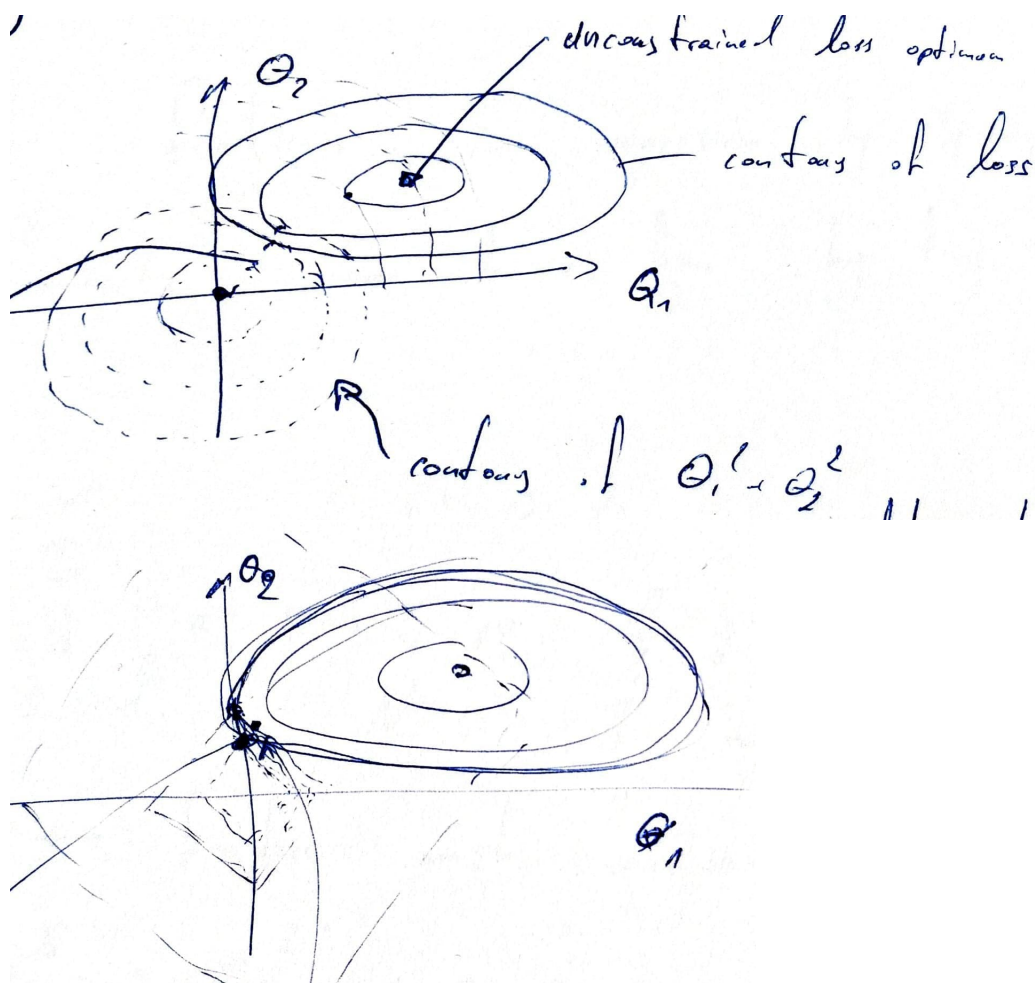 unconstrained loss optimum
Θ₂
contours of loss
Θ₁
contours of Θ₁² + Θ₂²
Θ₂
Θ₁